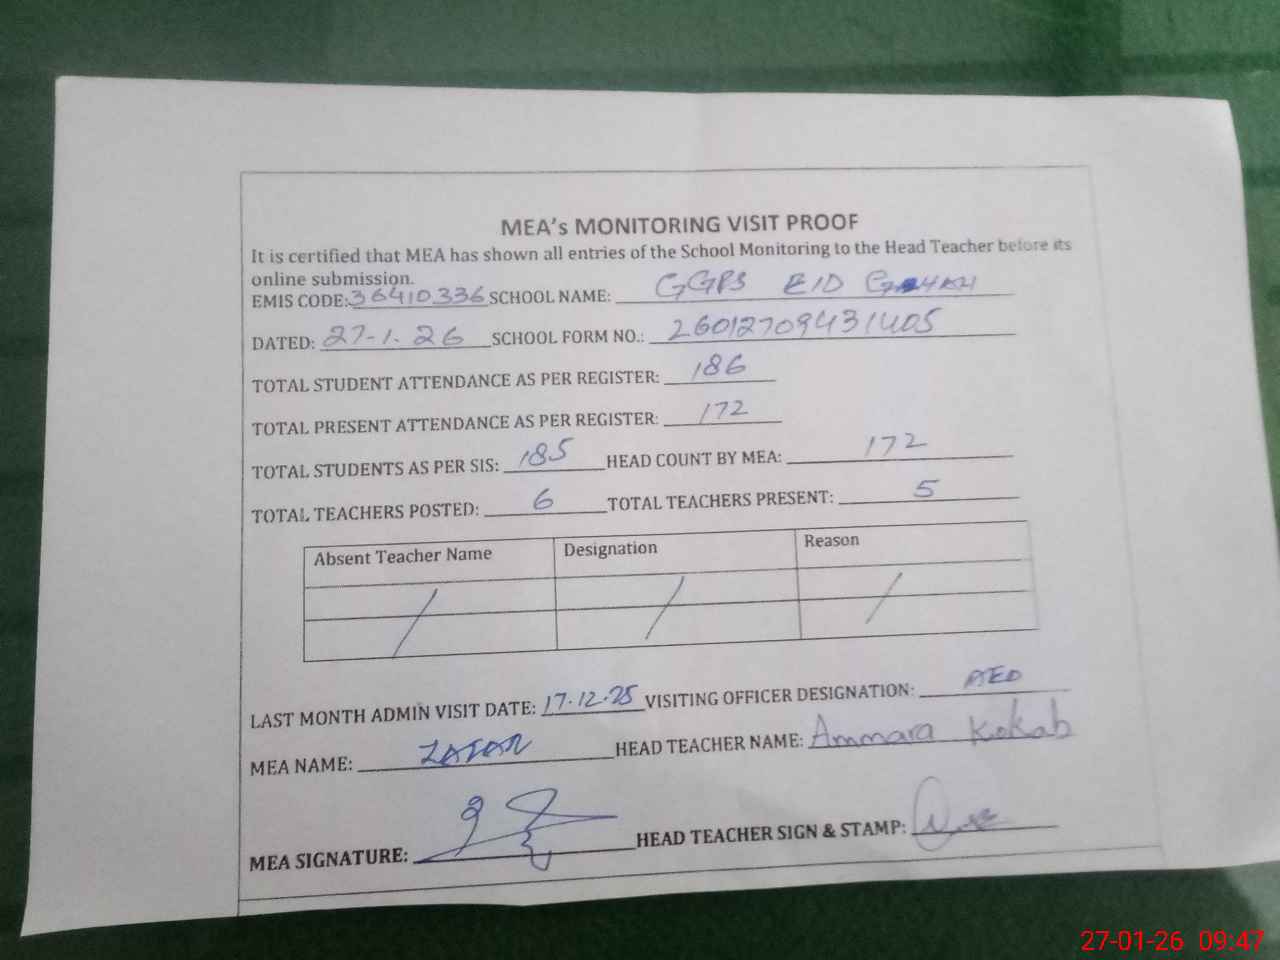 MEA's MONITORING VISIT PROOF
It is certified that MEA has shown all entries of the School Monitoring to the Head Teacher before its
online submission.
EMIS CODE: 36410336 SCHOOL NAME: GGPS EID
DATED: 27-1-26 SCHOOL FORM NO.: 26012709431405
TOTAL STUDENT ATTENDANCE AS PER REGISTER: 186
TOTAL PRESENT ATTENDANCE AS PER REGISTER: 172
TOTAL STUDENTS AS PER SIS: 185 HEAD COUNT BY MEA: 172
TOTAL TEACHERS POSTED: 6 TOTAL TEACHERS PRESENT: 5
Absent Teacher Name Designation Reason
LAST MONTH ADMIN VISIT DATE: 17-12-25 VISITING OFFICER DESIGNATION:
MEA NAME: ZAFAR HEAD TEACHER NAME: Ammara Kokab
MEA SIGNATURE: HEAD TEACHER SIGN & STAMP:
27-01-26 09:47